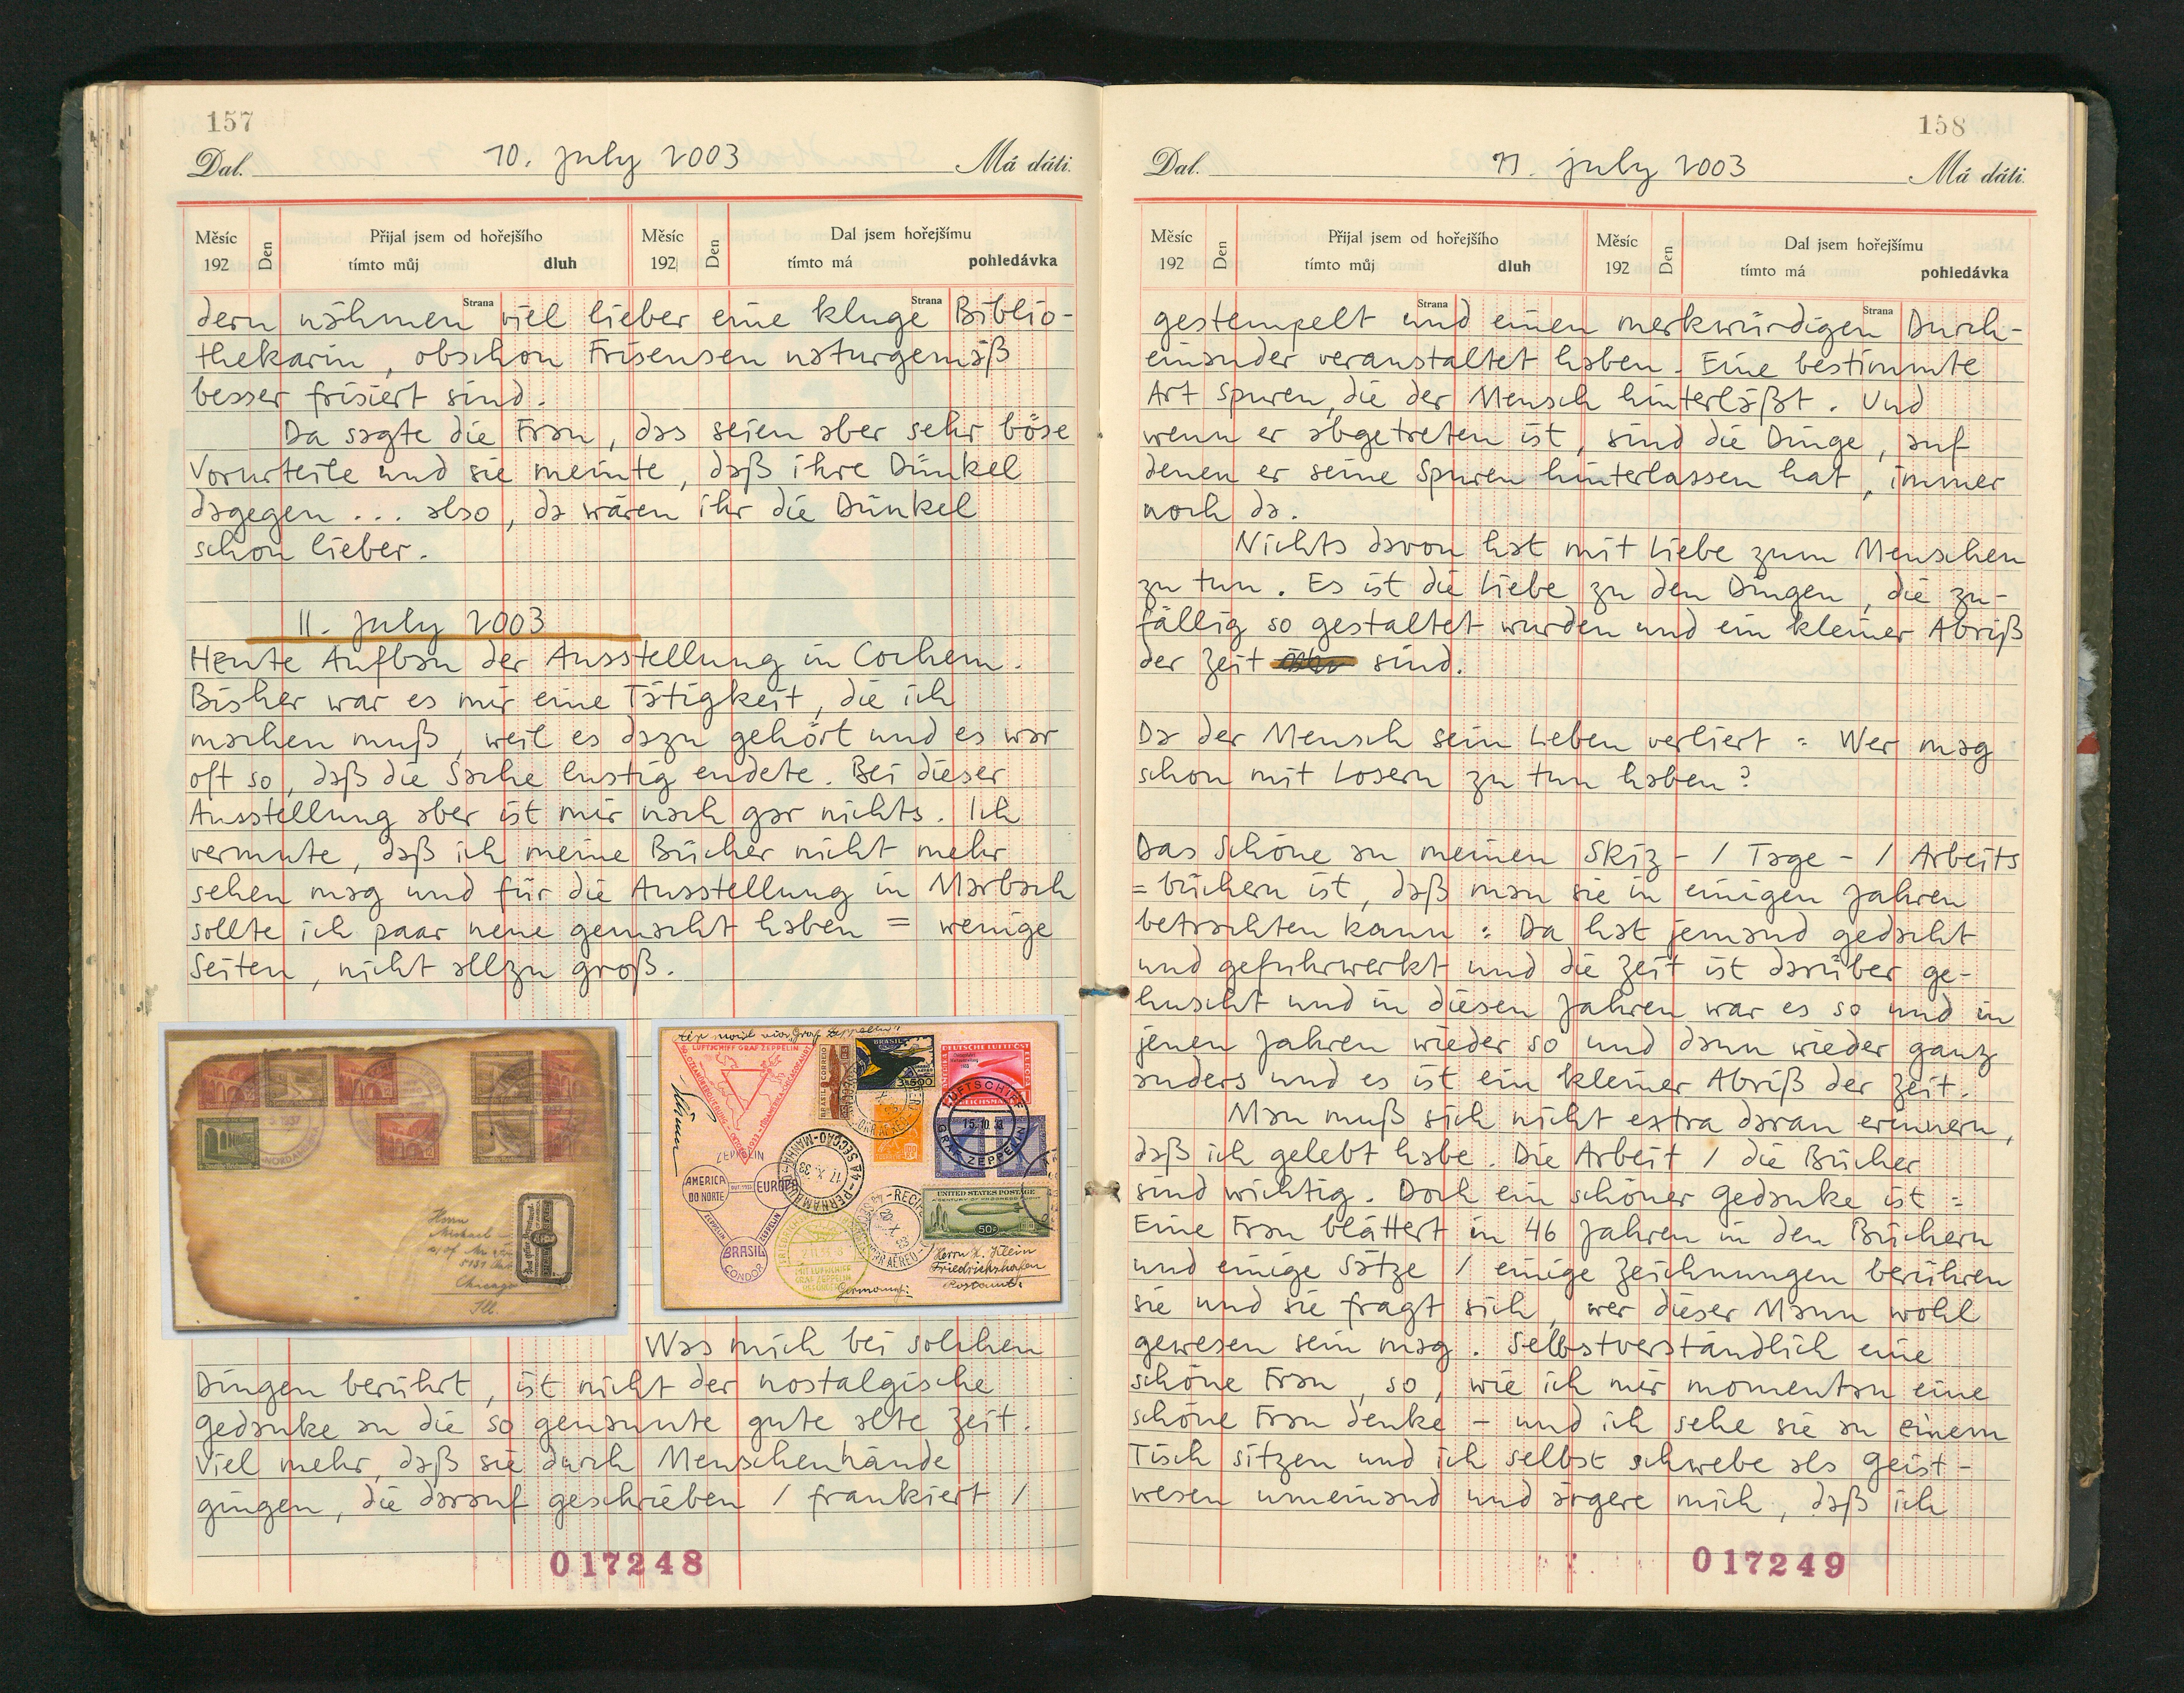 157
10. july 2003
Dal. Má dáti.
Měsíc 192 Den Přijal jsem od hořejšího tímto můj dluh Měsíc 192 Den Dal jsem hořejšímu tímto má pohledávka
Strana Strana
dern nähmen viel lieber eine kluge Biblio-
thekarin, obschon Friseusen naturgemäß
besser frisiert sind.
Da sagte die Frau, das seien aber sehr böse
Vorurteile und sie meinte, daß ihre Dünkel
dagegen ... also, da wären ihr die Dünkel
schon lieber.
11. july 2003
Heute Aufbau der Ausstellung in Cochem.
Bisher war es mir eine Tätigkeit, die ich
machen muß, weil es dazu gehört und es war
oft so, daß die Sache lustig endete. Bei dieser
Ausstellung aber ist mir nach gar nichts. Ich
vermute, daß ich meine Bücher nicht mehr
sehen mag und für die Ausstellung in Marbach
sollte ich paar neue gemacht haben = wenige
Seiten, nicht allzu groß.
Herrn
Michael
Chicago
Ill.
via Graf Zeppelin"
LUFTSCHIFF GRAF ZEPPELIN
BRASIL CORREIO
BRASIL
3$500
DEUTSCHE LUFTPOST
REICHSMARK
LUFTSCHIFF
15.10.33
GRAF ZEPPELIN
ZEPPELIN
AMERICA DO NORTE
EUROPA
ZEPPELIN
ZEPPELIN
BRASIL
CONDOR
4A SECCAO - PERNAMBUCO
17.X.33
RECIFE
20.X.33
UNITED STATES POSTAGE
A CENTURY OF PROGRESS FLIGHT
50c
MIT LUFTSCHIFF
GRAF ZEPPELIN
BEFÖRDERT
Herrn H. Klein
Friedrichshafen
Postamt
Germany:
Was mich bei solchen
Dingen berührt, ist nicht der nostalgische
Gedanke an die so genannte gute alte Zeit.
Viel mehr, daß sie durch Menschenhände
gingen, die darauf geschrieben / frankiert /
017248
158
11. july 2003
Dal. Má dáti.
Měsíc 192 Den Přijal jsem od hořejšího tímto můj dluh Měsíc 192 Den Dal jsem hořejšímu tímto má pohledávka
Strana Strana
gestempelt und einen merkwürdigen Durch-
einander veranstaltet haben. Eine bestimmte
Art Spuren, die der Mensch hinterläßt. Und
wenn er abgetreten ist, sind die Dinge, auf
denen er seine Spuren hinterlassen hat, immer
noch da.
Nichts davon hat mit Liebe zum Menschen
zu tun. Es ist die Liebe zu den Dingen, die zu-
fällig so gestaltet wurden und ein kleiner Abriß
der Zeit sind.
Da der Mensch sein Leben verliert : Wer mag
schon mit Losern zu tun haben?
Das Schöne an meinen Skiz - / Tage - / Arbeits
= büchern ist, daß man sie in einigen Jahren
betrachten kann : Da hat jemand gedacht
und gefuhrwerkt und die Zeit ist darüber ge-
huscht und in diesen Jahren war es so und in
jenen Jahren wieder so und dann wieder ganz
anders und es ist ein kleiner Abriß der Zeit.
Man muß sich nicht extra daran erinnern,
daß ich gelebt habe. Die Arbeit / die Bücher
sind wichtig. Doch ein schöner Gedanke ist :
Eine Frau blättert in 46 Jahren in den Büchern
und einige Sätze / einige Zeichnungen berühren
sie und sie fragt sich, wer dieser Mann wohl
gewesen sein mag. Selbstverständlich eine
schöne Frau, so, wie ich mir momentan eine
schöne Frau denke - und ich sehe sie an einem
Tisch sitzen und ich selbst schwebe als Geist-
wesen umeinand und ärgere mich, daß ich
017249